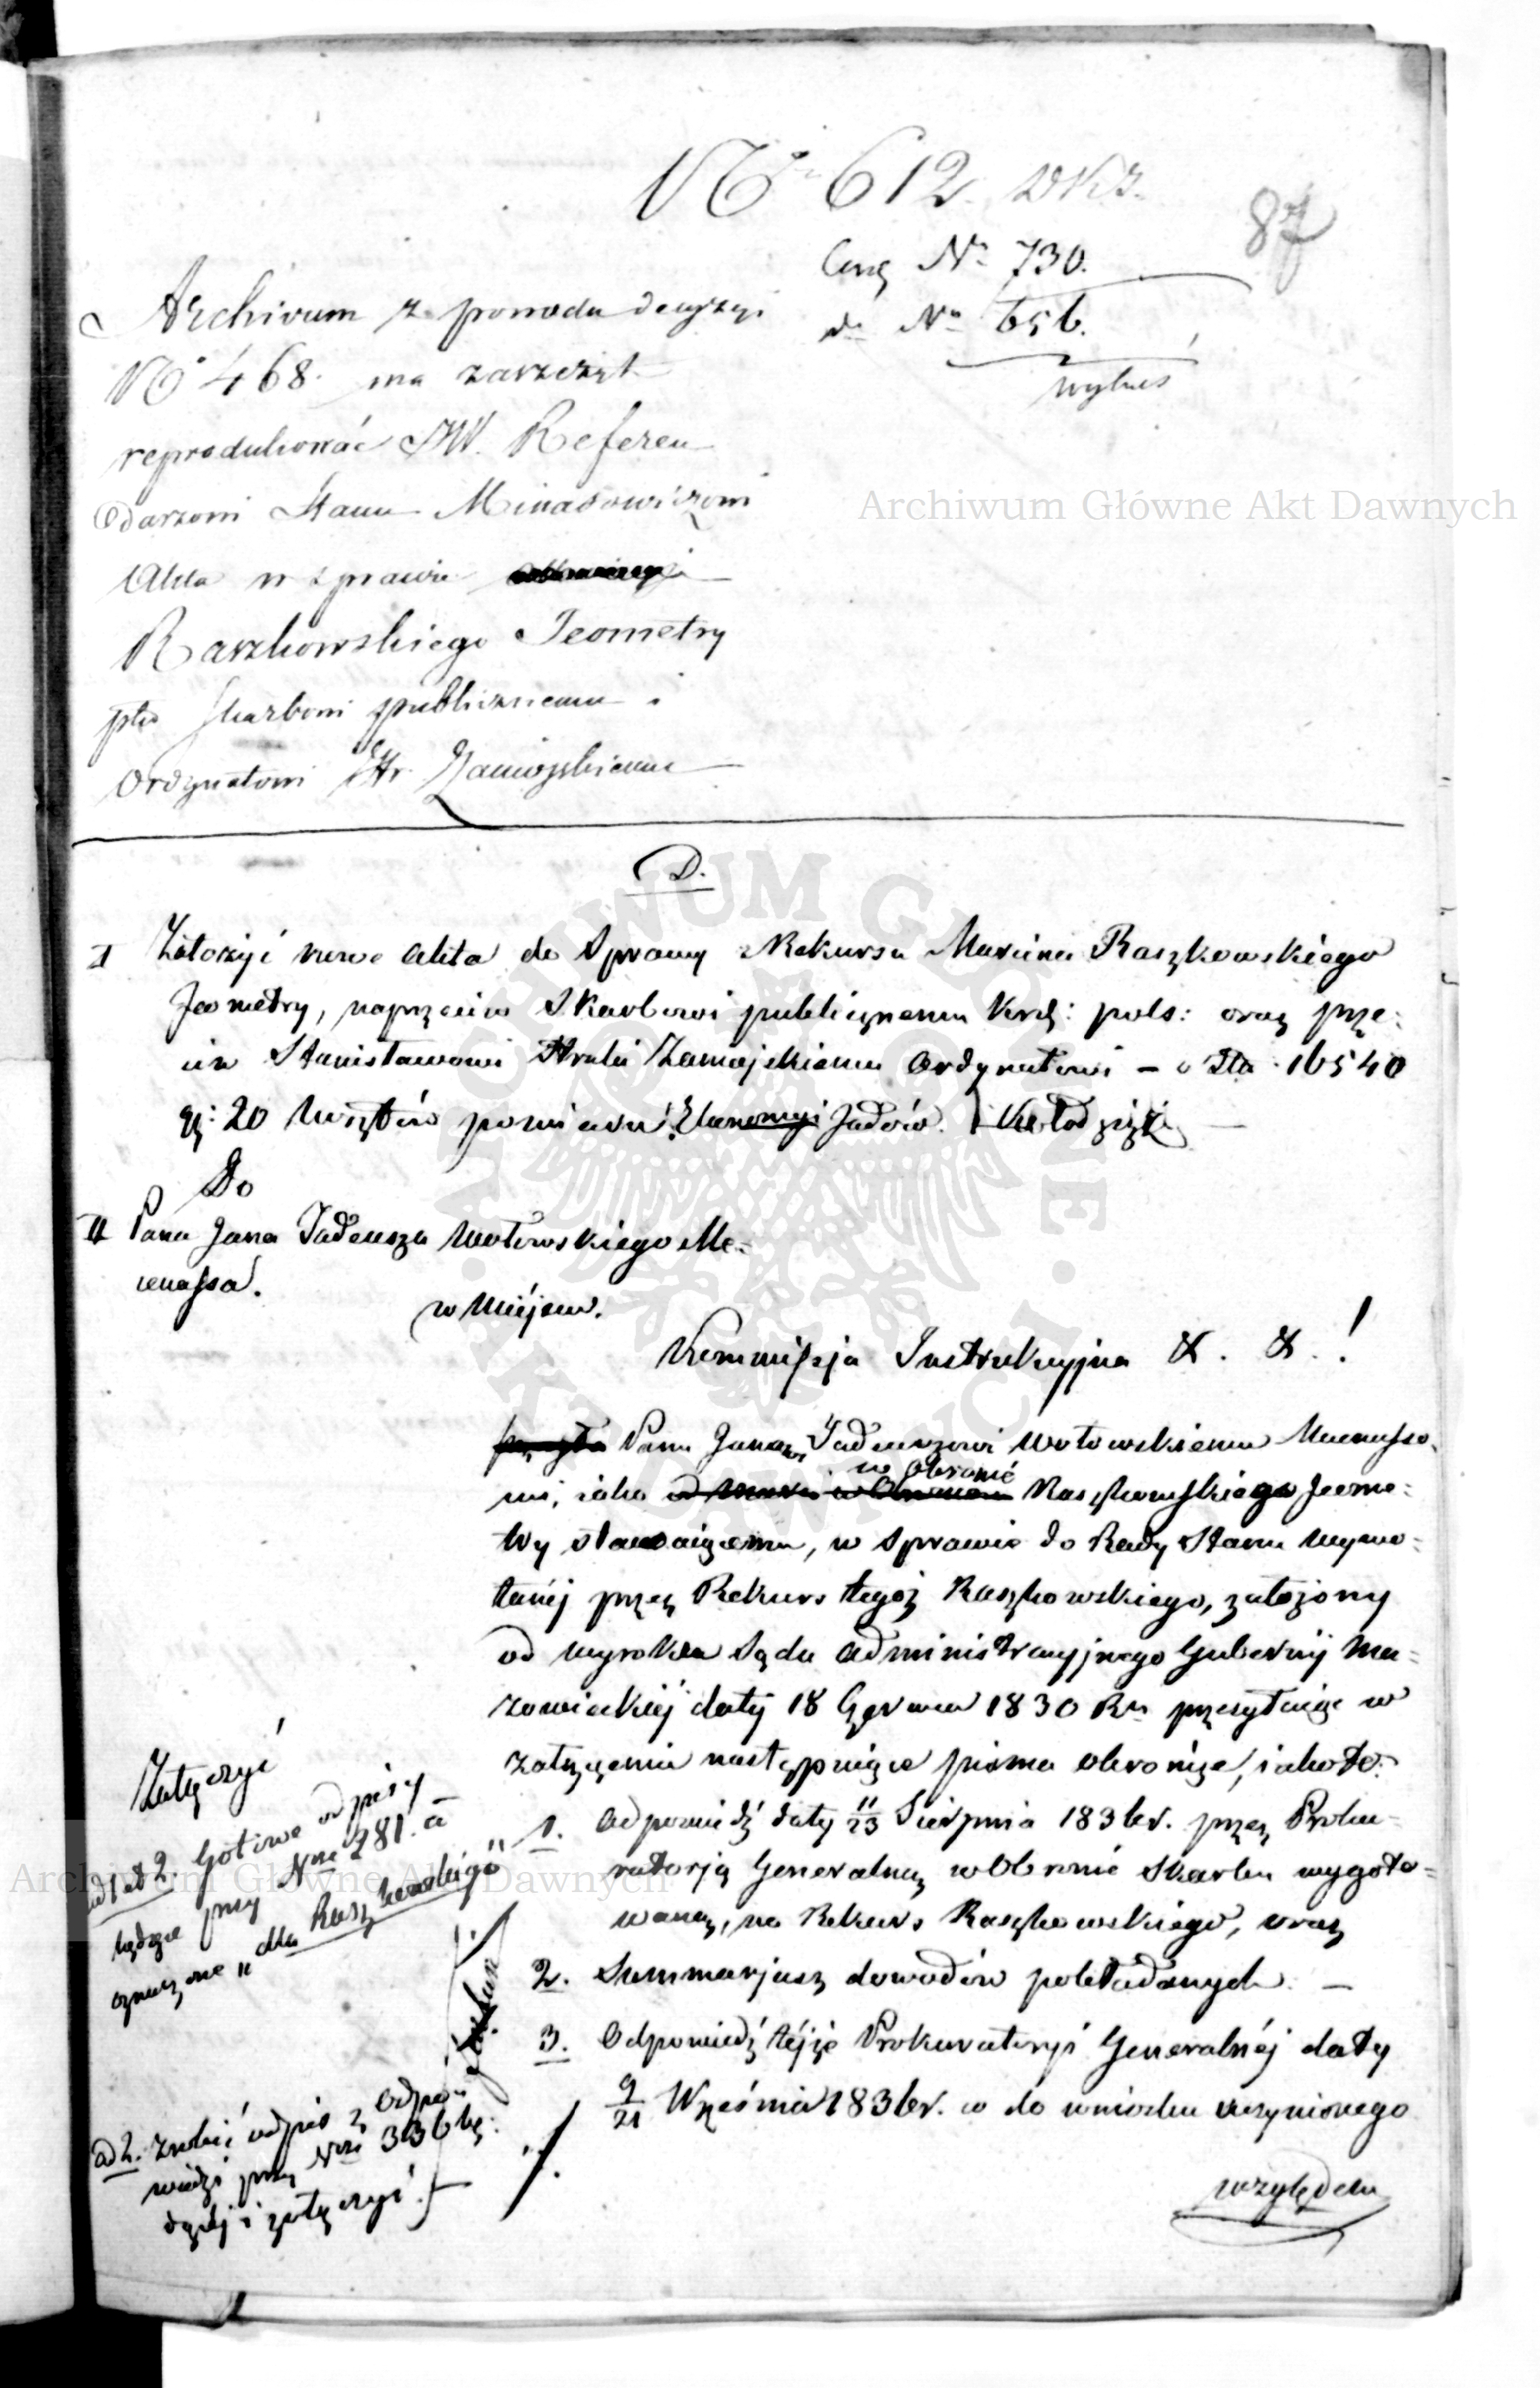 Nº 612
87
Nº 730.
do Nº 656.
Archivum z powodu decyzyi
Nº 468. ma zarzczyt
reprodukować JW. Referen
darzowi Stanu Minasowiczowi
Akta w sprawie
Raszkowskiego Jeometry
płko Skarbowi publicznemu i
Ordynatowi Hr. Zamoyskiemu
D.
I Założyć nowe akta do Sprawy z Rekursu Marcina Raszkowskiego
Jeometry, naprzeciw Skarbowi publicznemu Król: pols: oraz prze:
ciw Stanisławowi Hrabi Zamojskiemu Ordynatowi – o Złp. 16540
gr: 20 kosztów pomiaru Ekonomyi Jadów.
Do
II Pana Jana Tadeusza Wołowskiego Me-
cenassa.
w Miejscu.
Kommissja Instrukcyjna &. &. !
Panu Janowi Tadeuszowi Wołowskiemu Mecenasso-
wi, iako w Obronie Raszkowskiego Jeome-
try stawaiącemu, w Sprawie do Rady Stanu wywo-
łanéj przez Rekurs tegoż Raszkowskiego, założony
od wyroku Sądu Administracyjnego Gubernij Ma-
zowieckiéj daty 18 Czerwca 1830 Rº przesyłaiąc w
załączeniu następuiące pisma obronze, iakoto:
1. Odpowiedź daty 11/23 Sierpnia 1836 r. przez Proku-
ratorją Generalną w Obronie Skarbu wygoto-
waną, na Rekurs Raszkowskiego, oraz
2. Summarjusz dowodów pokładanych. –
3. Odpowiedź téjże Prokuratoryi Generalnéj daty
9/21 Września 1836 r. co do wniosku uczynionego
względem
Załączyć
ad 1 et 2. Gotowe odpisy
będące przy Nrze 281. a
oznaczone „dla Raszkowskiego"
ad 2. zrobić odpis z Odpo-
wiedzi przy Nrze 336 bę-
dącéj i załączyć.
Archiwum Główne Akt Dawnych
Archiwum Główne Akt Dawnych
ARCHIWUM GŁÓWNE · AKT DAWNYCH ·